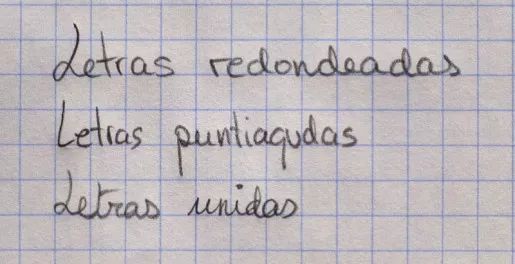 Letras redondeadas
Letras puntiagudas
Letras unidas